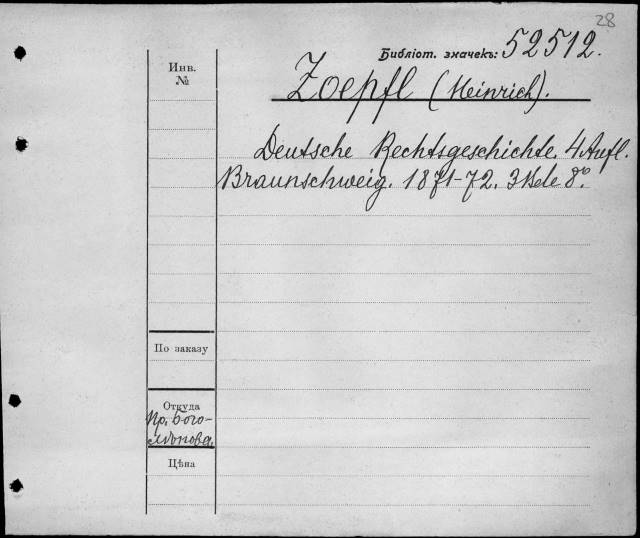 28
Библіот. значекъ: 52512.
Инв.
№
Zoepfl (Heinrich).
Deutsche Rechtsgeschichte. 4 Aufl.
Braunschweig. 1871-72. 3 Bde 8°.
По заказу
Откуда
Пр. Бого-
лѣпова.
Цѣна